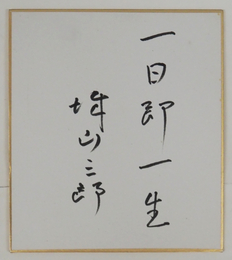 一日即一生
城山三郎